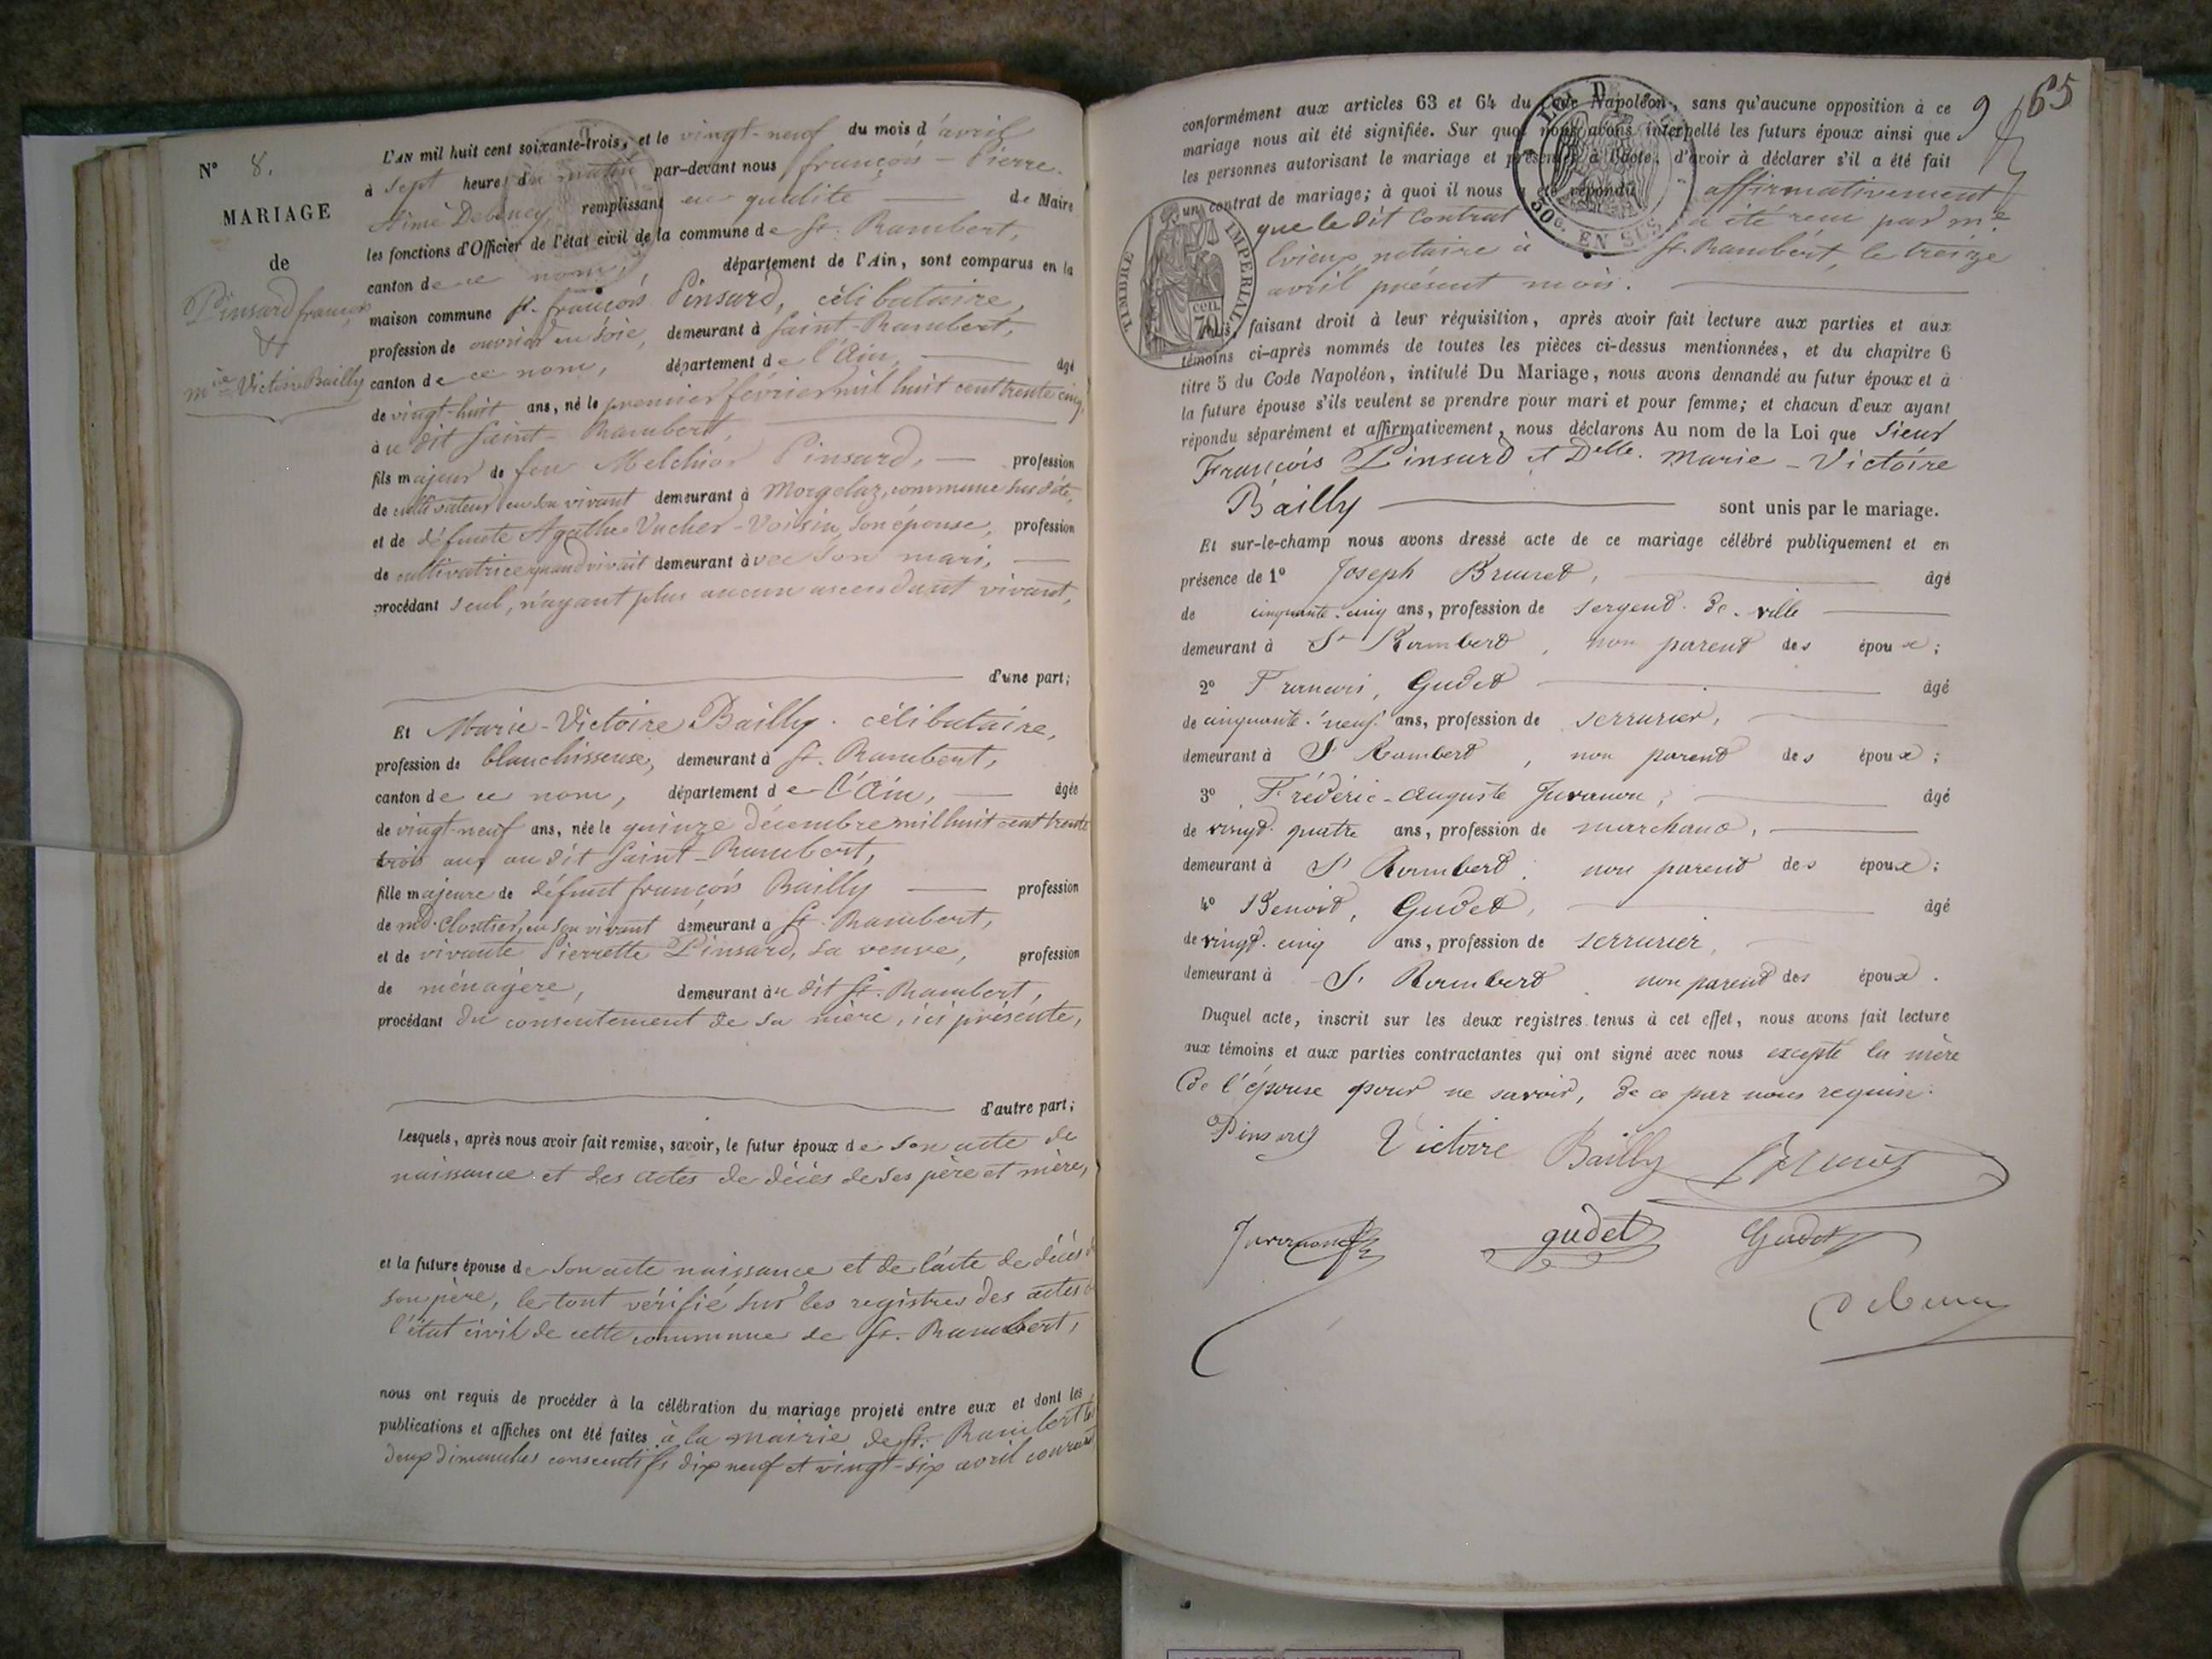 N° 8.
MARIAGE
de
Pinsard françois
&
mie Victoire Bailly
L'AN mil huit cent soixante-trois, et le vingt-neuf du mois d'avril
à sept heures du matin par-devant nous françois-Pierre
Aimé Debeney remplissant en qualité de Maire
les fonctions d'Officier de l'état civil de la commune de St. Rambert,
canton de ce nom, département de l'Ain, sont comparus en la
maison commune sr. françois Pinsard, célibataire,
profession de ouvrier en soie, demeurant à Saint-Rambert,
canton de ce nom, département de l'Ain, âgé
de vingt-huit ans, né le premier février mil huit cent trente cinq,
au dit Saint-Rambert,
fils majeur de feu Melchior Pinsard, profession
de cultivateur en son vivant demeurant à Morgelaz, commune susdite,
et de défunte Agathe Vucher-Voisin, son épouse, profession
de cultivatrice quand vivait demeurant avec son mari,
procédant seul, n'ayant plus aucun ascendant vivant,
d'une part;
Et Marie-Victoire Bailly. célibataire,
profession de blanchisseuse, demeurant à St. Rambert,
canton de ce nom, département de l'Ain, âgée
de vingt-neuf ans, née le quinze décembre mil huit cent trente
trois aus au dit Saint-Rambert,
fille majeure de défunt françois Bailly profession
de md. cloutier, en son vivant demeurant à St. Rambert,
et de vivante Pierrette Pinsard, sa veuve, profession
de ménagère, demeurant au dit St. Rambert,
procédant du consentement de sa mère, ici présente,
d'autre part;
Lesquels, après nous avoir fait remise, savoir, le futur époux de son acte de
naissance et des actes de décès de ses père et mère,
et la future épouse de son acte naissance et de l'acte de décès de
son père, le tout vérifié sur les registres des actes de
l'état civil de cette commune de St. Rambert,
nous ont requis de procéder à la célébration du mariage projeté entre eux et dont les
publications et affiches ont été faites à la mairie de St. Rambert les
deux dimanches consécutifs dix neuf et vingt-six avril courant
9 65
conformément aux articles 63 et 64 du Code Napoléon, sans qu'aucune opposition à ce
mariage nous ait été signifiée. Sur quoi nous avons interpellé les futurs époux ainsi que
les personnes autorisant le mariage et présentes à l'acte, d'avoir à déclarer s'il a été fait
un contrat de mariage; à quoi il nous a été répondu affirmativement
que le dit contrat a été reçu par me.
notaire à St. Rambert, le treize
avril présent mois.
TIMBRE IMPERIAL
70 cen.
50c. EN SUS
Nous, faisant droit à leur réquisition, après avoir fait lecture aux parties et aux
témoins ci-après nommés de toutes les pièces ci-dessus mentionnées, et du chapitre 6
titre 5 du Code Napoléon, intitulé Du Mariage, nous avons demandé au futur époux et à
la future épouse s'ils veulent se prendre pour mari et pour femme; et chacun d'eux ayant
répondu séparément et affirmativement, nous déclarons Au nom de la Loi que Sieur
François Pinsard et Delle. Marie-Victoire
Bailly sont unis par le mariage.
Et sur-le-champ nous avons dressé acte de ce mariage célébré publiquement et en
présence de 1° Joseph Brunet, âgé
de cinquante-cinq ans, profession de sergent de ville
demeurant à St Rambert, non parent des époux;
2° François, Gudet âgé
de cinquante-neuf ans, profession de serrurier,
demeurant à St Rambert, non parent des époux;
3° Frédéric-Auguste Juvanon, âgé
de vingt-quatre ans, profession de marchand,
demeurant à St Rambert, non parent des époux;
4° Benoit, Gudet, âgé
de vingt-cinq ans, profession de serrurier,
demeurant à St Rambert, non parent des époux.
Duquel acte, inscrit sur les deux registres tenus à cet effet, nous avons fait lecture
aux témoins et aux parties contractantes qui ont signé avec nous excepté la mère
de l'épouse pour ne savoir, de ce par nous requise.
Pinsard Victoire Bailly Brunet
Juvanon gudet Gudet
Debeney